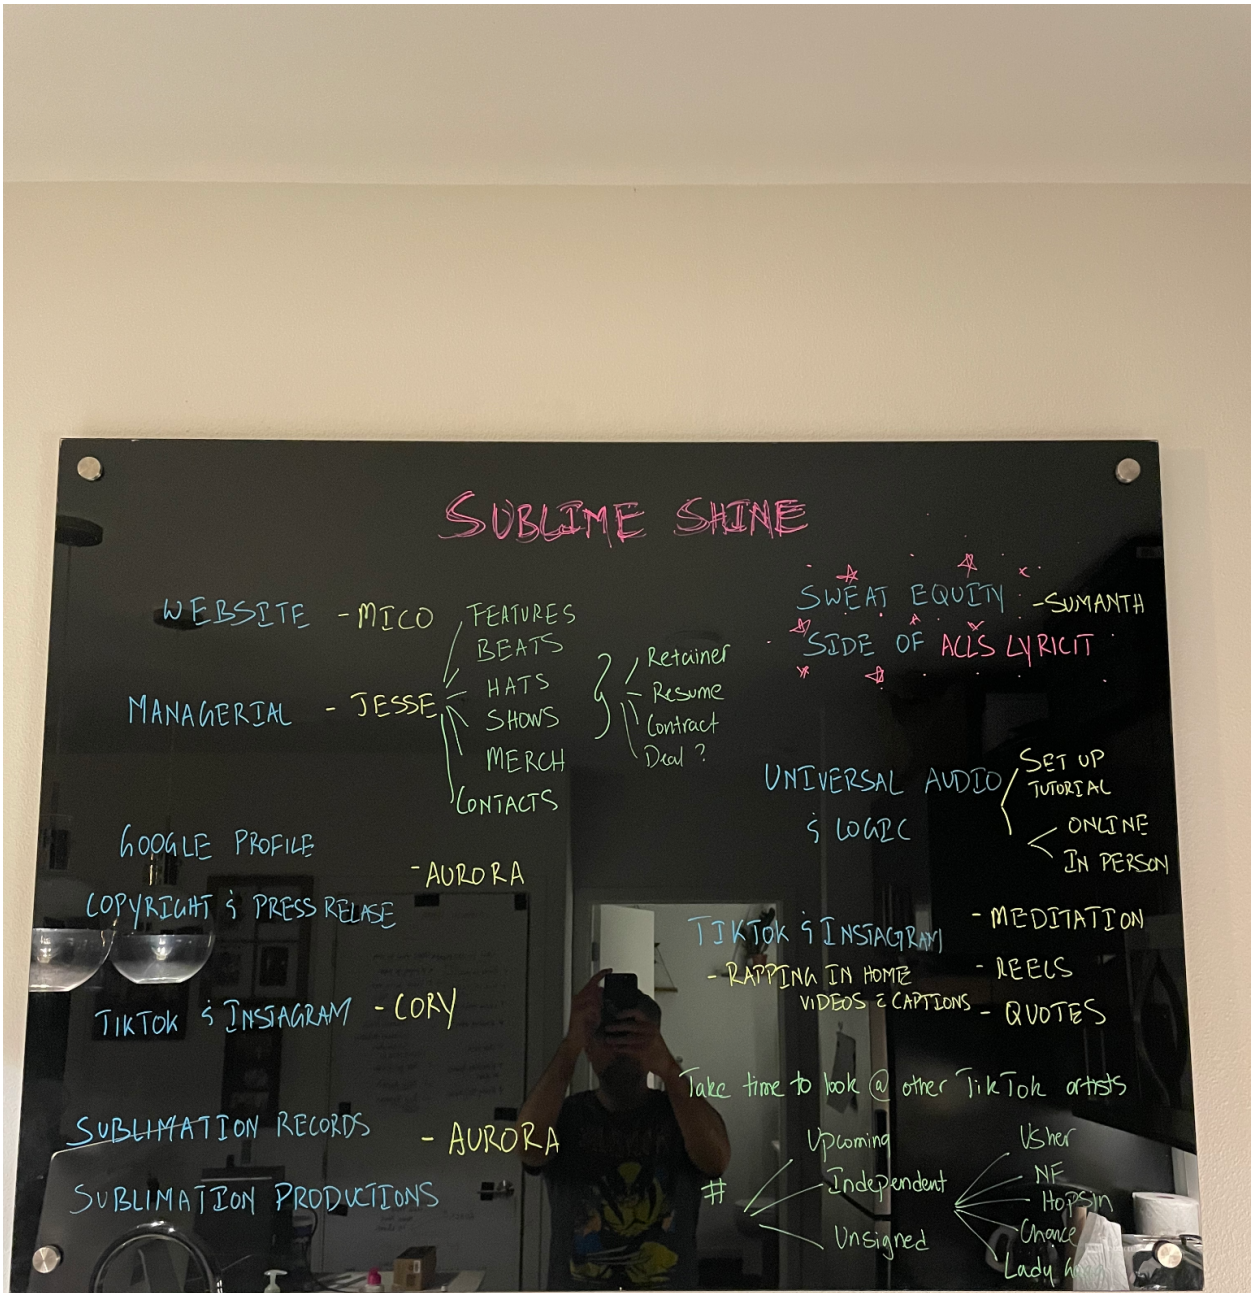 SUBLIME SHINE
WEBSITE - MICO
MANAGERIAL - JESSE
FEATURES
BEATS
HATS
SHOWS
MERCH
CONTACTS
Retainer
Resume
Contract
Deal ?
GOOGLE PROFILE
COPYRIGHT & PRESS RELASE
- AURORA
TIKTOK & INSTAGRAM - CORY
SUBLIMATION RECORDS
- AURORA
SUBLIMATION PRODUCTIONS
SWEAT EQUITY - SUMANTH
SIDE OF ACLS LYRICIT
UNIVERSAL AUDIO
& LOGIC
SET UP
TUTORIAL
ONLINE
IN PERSON
TIKTOK & INSTAGRAM
- RAPPING IN HOME
VIDEOS & CAPTIONS
- MEDITATION
- REELS
- QUOTES
Take time to look @ other TikTok artists
#
Upcoming
Independent
Unsigned
Usher
NF
HOPSIN
Chance
Lady